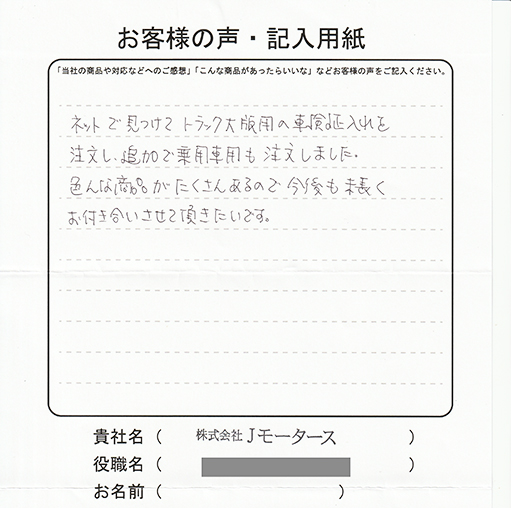 お客様の声・記入用紙
「当社の商品や対応などへのご感想」「こんな商品があったらいいな」などお客様の声をご記入ください。
ネットで見つけて トラック大版用の車検証入れを
注文し、追加で乗用車用も注文しました。
色んな商品がたくさんあるので今後も末長く
お付き合いさせて頂きたいです。
貴社名（ 株式会社Jモータース ）
役職名（ ）
お名前（ ）